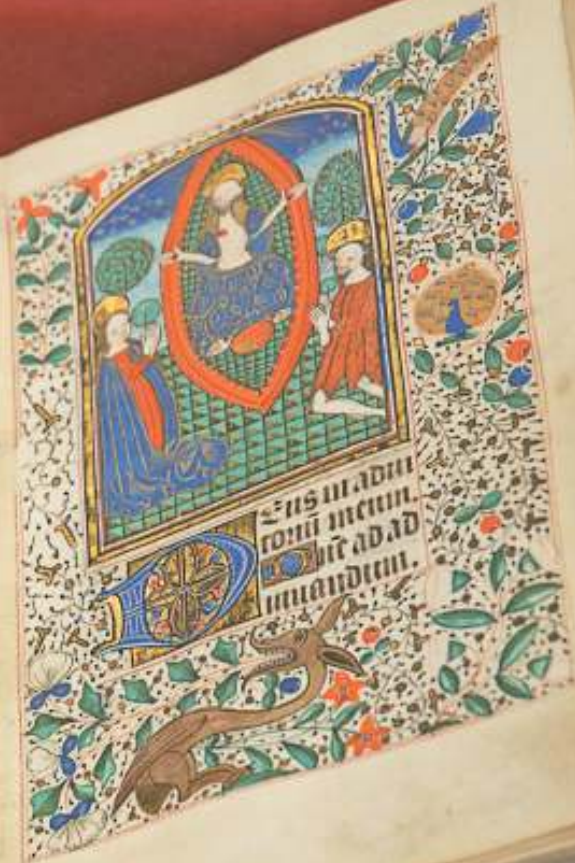 DEus in adiu
toriū meum.
Dñe ad ad
iuuandum.